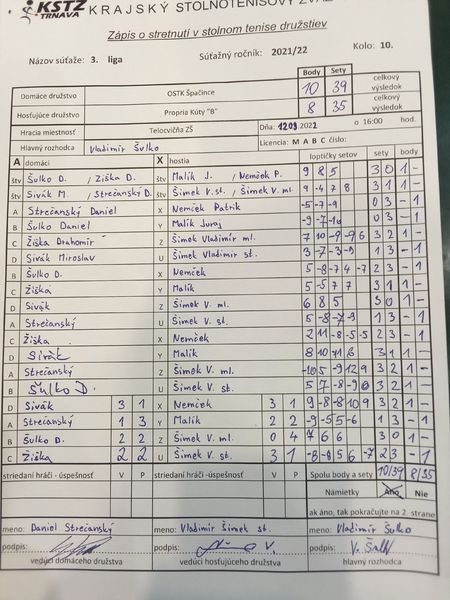 KSTZ TRNAVA KRAJSKÝ STOLNOTENISOVÝ
Zápis o stretnutí v stolnom tenise družstiev
Názov súťaže: 3. liga Súťažný ročník: 2021/22 Kolo: 10.
Body Sety celkový výsledok
Domáce družstvo OSTK Špačince 10 39
Hosťujúce družstvo Propria Kúty "B" 8 35 celkový výsledok
Hracia miestnosť Telocvičňa ZŠ Dňa: 12.03.2022 o 16:00 hod.
Hlavný rozhodca Vladimír Šulko Licencia: M A B C číslo:
A domáci X hostia loptičky setov sety body
štv Šulko D. / Žiška D. štv Malík J. / Nemček P. 9 8 5 3 0 1 -
štv Sivák M. / Strečanský D. štv Šimek V. st. / Šimek V. ml. 9 -4 7 8 3 1 1 -
A Strečanský Daniel X Nemček Patrik -5 -7 -9 0 3 - 1
B Šulko Daniel Y Malík Juraj -9 -7 -16 0 3 - 1
C Žiška Drahomír Z Šimek Vladimír ml. 7 10 -9 -9 6 3 2 1 -
D Sivák Miroslav U Šimek Vladimír st. 3 -7 -3 -9 1 3 - 1
B Šulko D. X Nemček 5 -8 -7 4 -7 2 3 - 1
C Žiška Y Malík 5 -5 7 7 3 1 1 -
D Sivák Z Šimek V. ml. 6 8 5 3 0 1 -
A Strečanský U Šimek V. st. 5 -8 -7 -9 1 3 - 1
C Žiška X Nemček 2 11 -8 -5 -5 2 3 - 1
D Sivák Y Malík 8 10 -11 6 3 1 1 -
A Strečanský Z Šimek V. ml. -10 5 -9 12 9 3 2 1 -
B Šulko D. U Šimek V. st. 5 7 -8 -9 3 2 1 -
D Sivák 3 1 X Nemček 3 1 -9 -8 8 10 9 3 2 1 -
A Strečanský 1 3 Y Malík 2 2 -9 -5 5 -6 1 3 - 1
B Šulko D. 2 2 Z Šimek V. ml. 0 4 7 6 6 3 0 1 -
C Žiška 2 2 U Šimek V. st. 3 1 -8 -8 5 6 -7 2 3 - 1
striedaní hráči - úspešnosť V P striedaní hráči - úspešnosť V P Spolu body a sety 10/39 8/35
Námietky Áno Nie
ak áno, tak pokračujte na 2. strane
meno: Daniel Strečanský meno: Vladimír Šimek st. meno: Vladimír Šulko
podpis: podpis: podpis:
vedúci domáceho družstva vedúci hosťujúceho družstva hlavný rozhodca